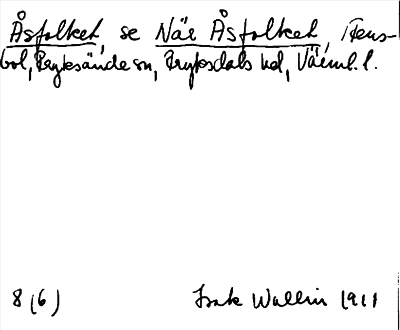 Åsfolket, se När Åsfolket, Stens-
bol, Fryksände sn, Fryksdals hd, Värml. l.
8 (6) Isak Wallin 1911